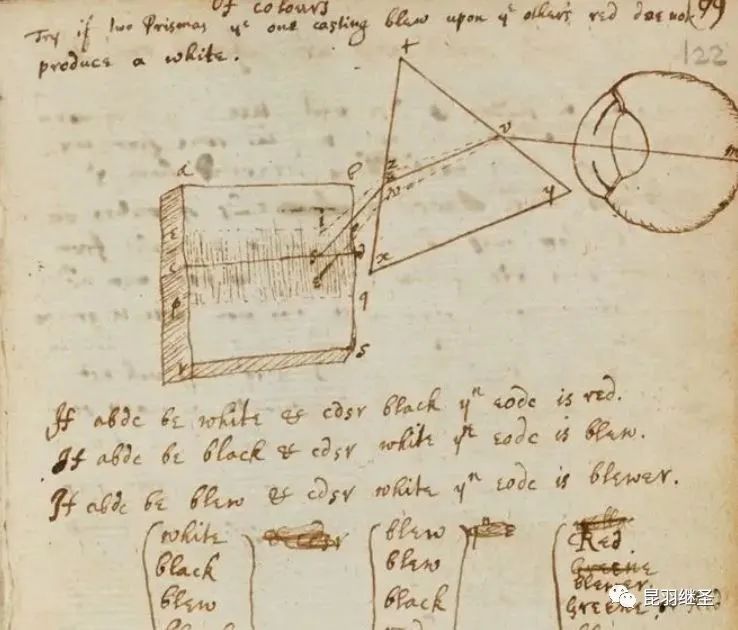 Of colours
Try if two Prismas yᵉ one casting blew upon yᵉ others red doe not
produce a white.
99
122
t
v
m
z
y
x
a
b
c
d
q
r
s
If abdc be white & cdsr black yⁿ eodc is red.
If abdc be black & cdsr white yⁿ eodc is blew.
If abdc be blew & cdsr white yⁿ eodc is blewer.
white blew Red.
black blew Greene
blewer.
blew black Greene
昆羽继圣